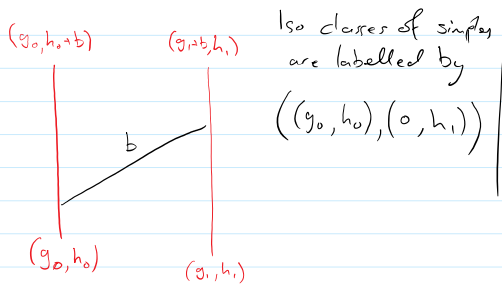 (g₀,h₀+b)
(g₁+b,h₁)
b
(g₀,h₀)
(g₁,h₁)
Iso classes of simples
are labelled by
((g₀,h₀),(0,h₁))